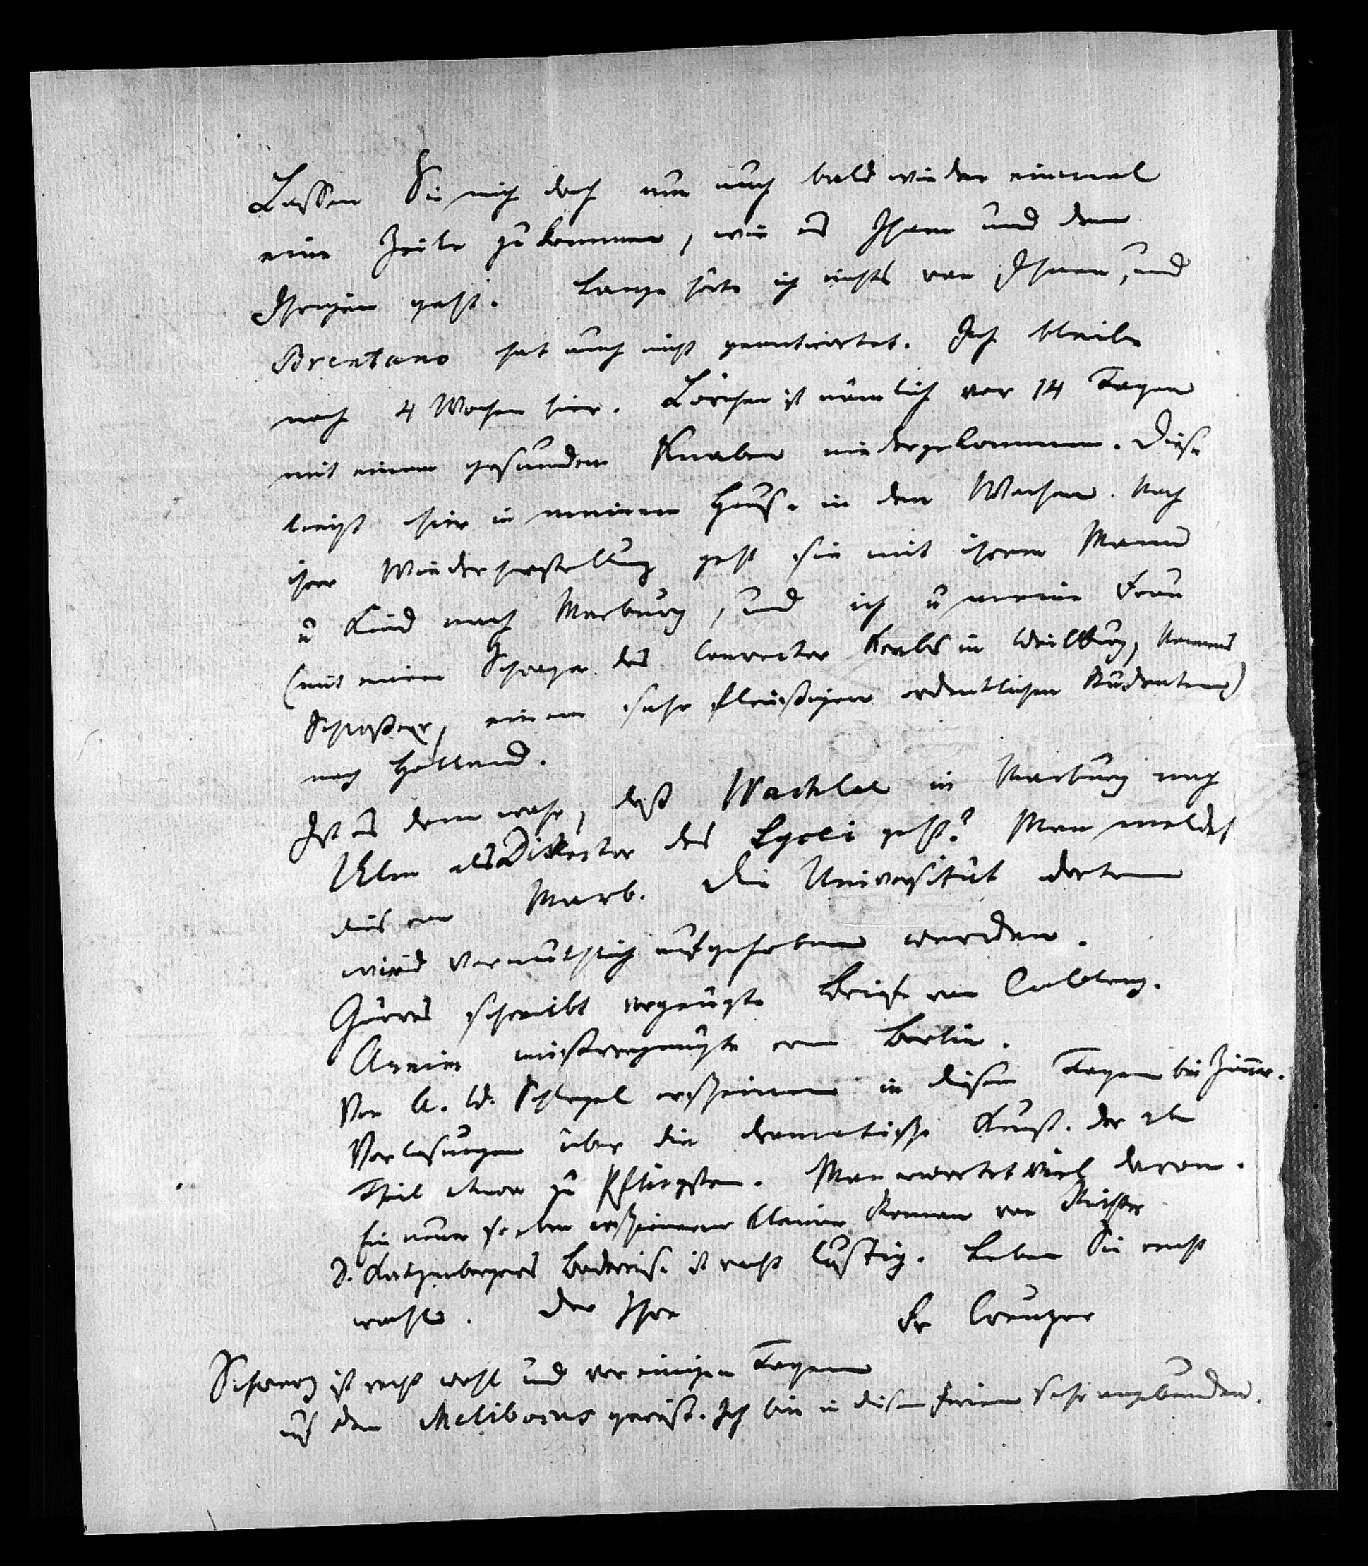 Lassen Sie mich doch nun auch bald wieder einmal
eine Zeile zukommen, wie es Ihnen und den
Ihrigen geht. Lange hörte ich nichts von Ihnen, und
Brentano hat auch nicht geantwortet. Ich bleibe
noch 4 Wochen hier. Lörchen ist nämlich vor 14 Tagen
mit einem gesunden Knaben niedergekommen. Diese
liegt hier in meinem Hause in den Wochen. Nach
ihrer Wiederherstellung geht sie mit ihrem Mann
u Kind nach Marburg, und ich u meine Frau
(mit einem Schwager des Conrector Krebs in Weilburg, Namens
Schlosser, einem sehr fleißigen ordentlichen Studenten)
nach Holland.
Ist es denn wahr, daß Wachler in Marburg nach
Ulm als Director des Lycei geht? Man meldet
dies von Marb. Die Universität dorten
wird vermuthlich aufgehoben werden.
Görres schreibt vergnügte Briefe von Coblenz.
Arnim mißvergnügte von Berlin.
Von A. W. Schlegel erscheinen in diesen Tagen bei Zimmer.
Vorlesungen über die dramatische Kunst. Der 2te
Theil etwa zu Pfingsten. Man erwartet viel davon.
Ein neuer so eben erschienener kleiner Roman von Richter
D. Katzenbergers Badereise ist recht lustig. Leben Sie recht
wohl. Der Ihre Fr Creuzer
Schwarz ist recht wohl und vor einigen Tagen
auf den Melibocus gereist. Ich bin in diesen Ferien sehr angebunden.